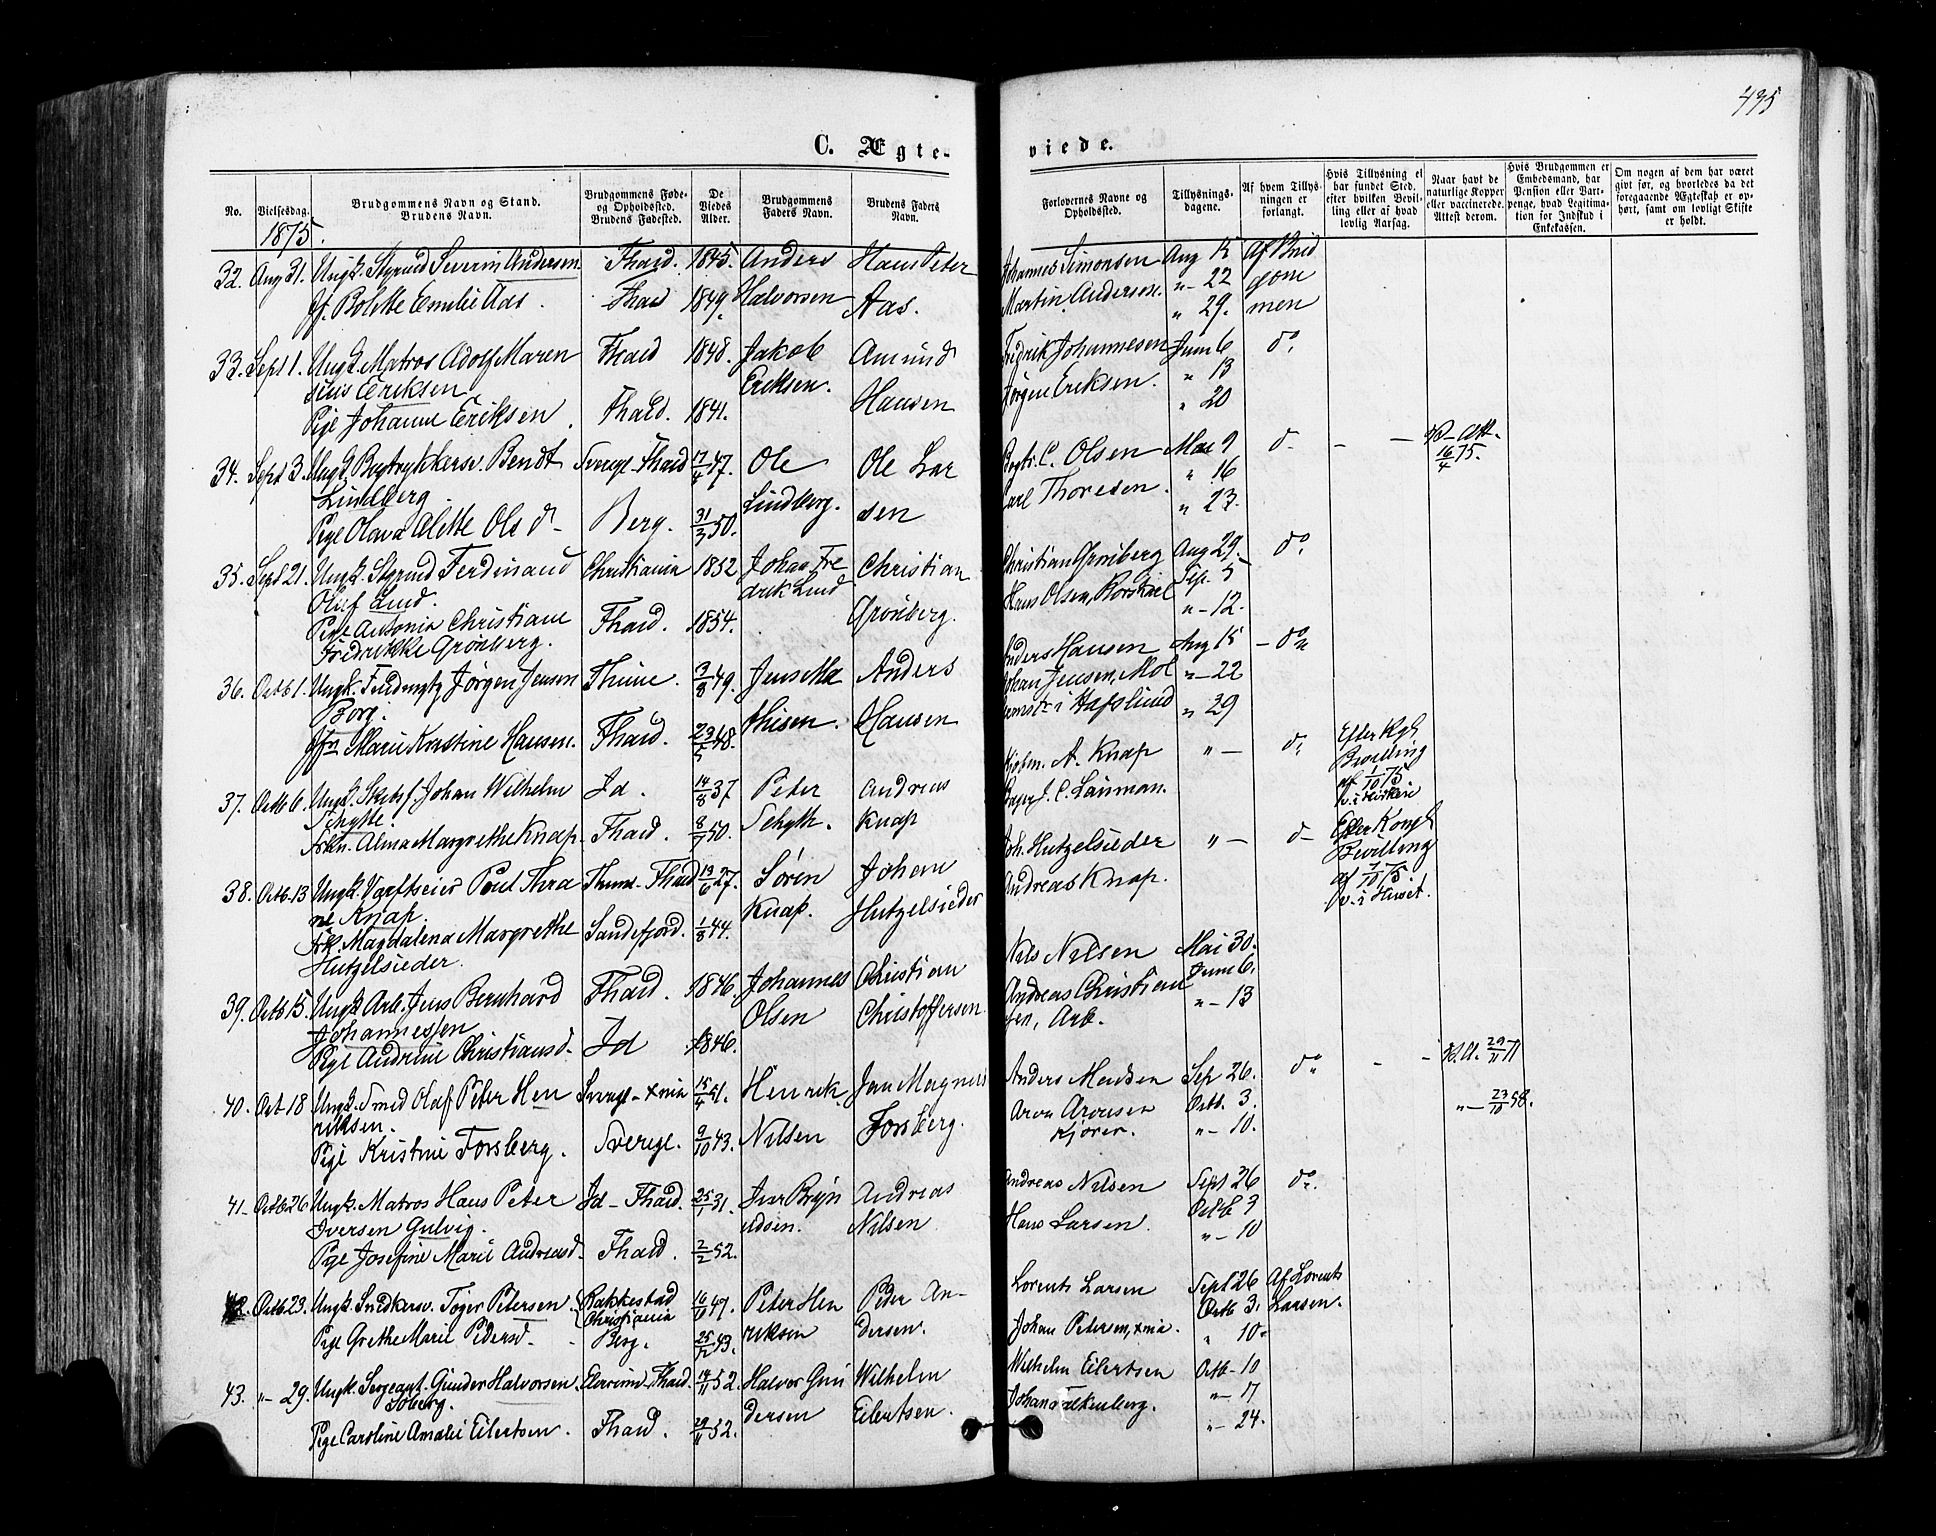 435
C. Ægte-
viede.
No.
Vielsesdag.
Brudgommens Navn og Stand.
Brudens Navn.
Brudgommens Føde-
og Opholdssted.
Brudens Fødested.
De
Viedes
Alder.
Brudgommens
Faders Navn.
Brudens Faders
Navn.
Forlovernes Navne og
Opholdssted.
Tillysnings-
dagene.
Af hvem Tillys-
ningen er
forlangt.
Hvis Tillysning ei
har fundet Sted,
efter hvilken Bevil-
ling eller af hvad
lovlig Aarsag.
Naar havt de
naturlige Kopper
eller vaccinerede.
Attest derom.
Hvis Brudgommen er
Embedsmand, har
Pension eller Vart-
penge, hvad Legitima-
tion for Indskud i
Enkekassen.
Om nogen af dem har været
gift før, og hvorledes da det
foregaaende Ægteskab er op-
hørt, samt om lovligt Skifte
er holdt.
1875.
32. Aug 31. Ungk. Styrmd Severin Andersen Fhald. 1845. Anders Hans Peter
Johannes Simonsen Aug 15 Af Brud
Jf. Bolette Emilie Aas. Fhald 1849. Halvorsen Aas.
Martin Andersen. " - 22 gom
" 29. men
33. Sept 1. Ungk. Matros Adolf Maren Fhald 1848. Jakob Amund
sius Eriksen Eriksen.
Fredrik Johannesen Juni 6 do
Jørgen Eriksen. " 13
" 20
Pige Johanne Eriksen Fhald. 1841. Hansen
34. Sept 3. Ungk. Bogtrykkersv. Bendt Sverige - Fhald 17/4 47. Ole Ole Lar
Lindberg Lindberg. sen
Bogtr. C. Olsen Mai 9 d - - - Att.
Carl Thoresen. " 16 16/4 75.
" 23.
Pige Olava Alette Olsd - Berg. 31/3 50.
35. Sept 21. Ungk. Styrmd Ferdinand Christiania 1852 Johan Fre Christian
Oluf Lund. drik Lund
Christian Grønberg Aug 29. do
Hans Olsen, Sep. 5
" - 12.
Pige Antonia Christiane Fhald. 1854. Grønberg.
Fredrikke Grønberg.
36. Octb 1. Ungk. Jørgen Jensen Thune. 3/8 49. Jens Ma Anders
Borg. thisen. Hansen
Anders Hansen Aug 15 - do
Johan Jensen, Møl " - 22
i Hafslund " 29
Marie Kristine Hansen. Fhald. 23/5 48.
37. Octb 6. Ungk. Skibsf. Johan Wilhelm Id. 14/8 37 Peter Andreas
Schytte. Schytt. Knap
A. Knap " - d. Efter Kgl
J. C. Lauman. Bevilling
af 1/10 75
v. i Kirken
Frkn. Alma Margrethe Knap. Fhald. 8/7 50.
38. Octb. 13 Ungk. Værftseier Poul Thra Thrond - Fhald 13/6 27. Søren Johan
ne Knap. Knap. Hutzelsieder
Joh. Hutzelsieder " - d - Efter Kongl
Andreas Knap. Bevilling
af 7/10 75.
v. i Huset.
Frk. Magdalena Margrethe Sandefjord. 1/8 44.
Hutzelsieder.
39. Octb 15. Ungk. Arb. Jens Bernhard Fhald. 1846. Johannes Christian
Johannessen Olsen Christoffersen
Nils Nilsen Mai 30.
Andreas Christian Juni 6.
sen, Arb. " - 13
Pige Andrine Christiansd. Id 1846.
40. Oct 18 Ungk. Smed Olaf Peter Hen Sverige - Xnia 15/4 51. Henrik Jan Magnus
riksen. Nilsen Forsberg.
Anders Madsen Sep 26. do - - 29/11 71
Aron Aronsen Octb. 3. " - 23/10 58.
Kjører. " - 10.
Pige Kristine Forsberg. Sverige. 9/10 43.
41. Octb 26 Ungk. Matros Hans Peter Id - Fhald. 25/1 31. Iver Bryn Andreas
Iversen Gulvig. Nilsen
Andreas Nilsen Sept 26 do.
Hans Larsen. Octb 3
" - 10
Pige Josefine Marie Andreasd. Fhald. 2/2 52.
42. Octb. 23. Ungk. Snedkersv. Tøger Petersen Rakkestad
Christiania 16/10 47. Peter Hen Peder An-
Lorents Larsen Sept 26 Af Lorents
Octb 3. Larsen.
Pige Grethe Marie Pedersd. Berg. 25/12 43. riksen dersen.
Johan Petersen, Xnia. " 10.
43. " - 29. Ungk. Sergeant Gunder Halvorsen - Fhald. 14/11 52. Halvor Gun Wilhelm
Soberg. dersen Eilertsen.
Wilhelm Eilertsen Octb - 10
Johan Falkenberg. " - 17
" - 24.
Pige Caroline Amalie Eilertsen. Fhald. 29/11 52.